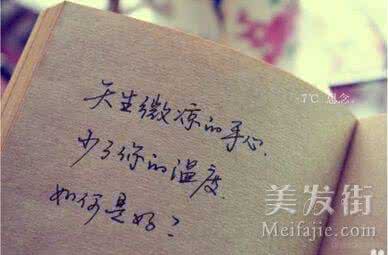 天生微凉的手心.
少了你的温度.
如何是好?
7℃ 想念。
美发街
Meifajie.com